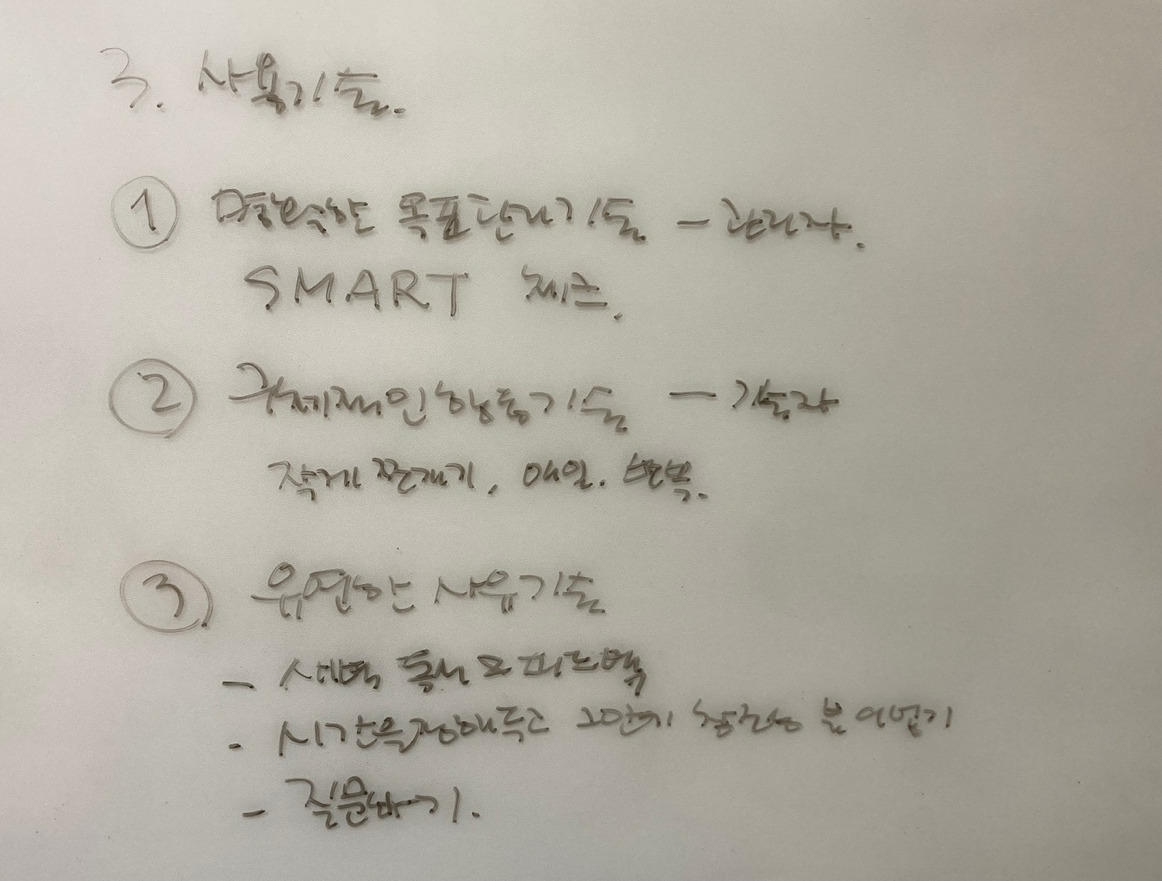 3. 사용기술.
① 명확한 목표관리기술 - 관리자.
SMART 체크.
② 구체적인 행동기술 - 기술자
작게 쪼개기, 매일. 반복.
③ 유연한 사유기술
- 새벽 독서로 피드백
- 시간을 정해두고 그안에 창조성 불어넣기
- 질문하기.